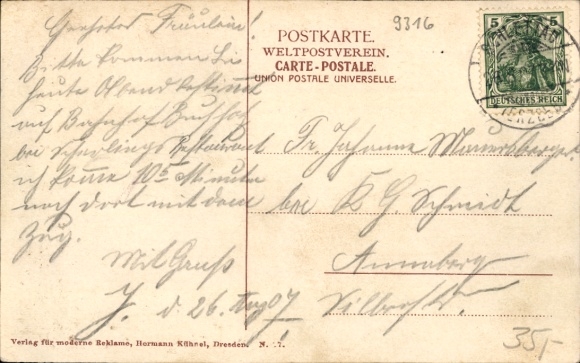 Geehrtes Fräulein!
Bitte kommen Sie
heute Abend bestimmt
auf Bahnhof Buchholz
bei Restaurant
ich komme 10 Minute
noch dort mit dem
Zug.
Mit Gruß
J. d 26. Aug 07
9316
POSTKARTE.
WELTPOSTVEREIN.
CARTE-POSTALE.
UNION POSTALE UNIVERSELLE.
5 5
DEUTSCHES REICH
SCHLETTAU
Fr. Johanne
bei K G Schmidt
Annaberg
Verlag für moderne Reklame, Hermann Kühnel, Dresden. N.
35,-